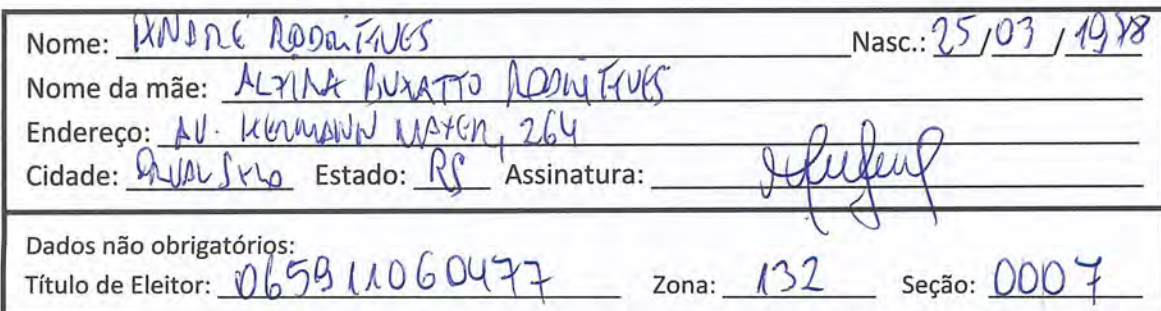 Nome: ANDRÉ RODRIGUES Nasc.: 25/03/1978
Nome da mãe: ALZIRA RODRIGUES
Endereço: AV. HERMANN MEYER, 264
Cidade: Estado: RS Assinatura:
Dados não obrigatórios:
Título de Eleitor: 065911060477 Zona: 132 Seção: 0007